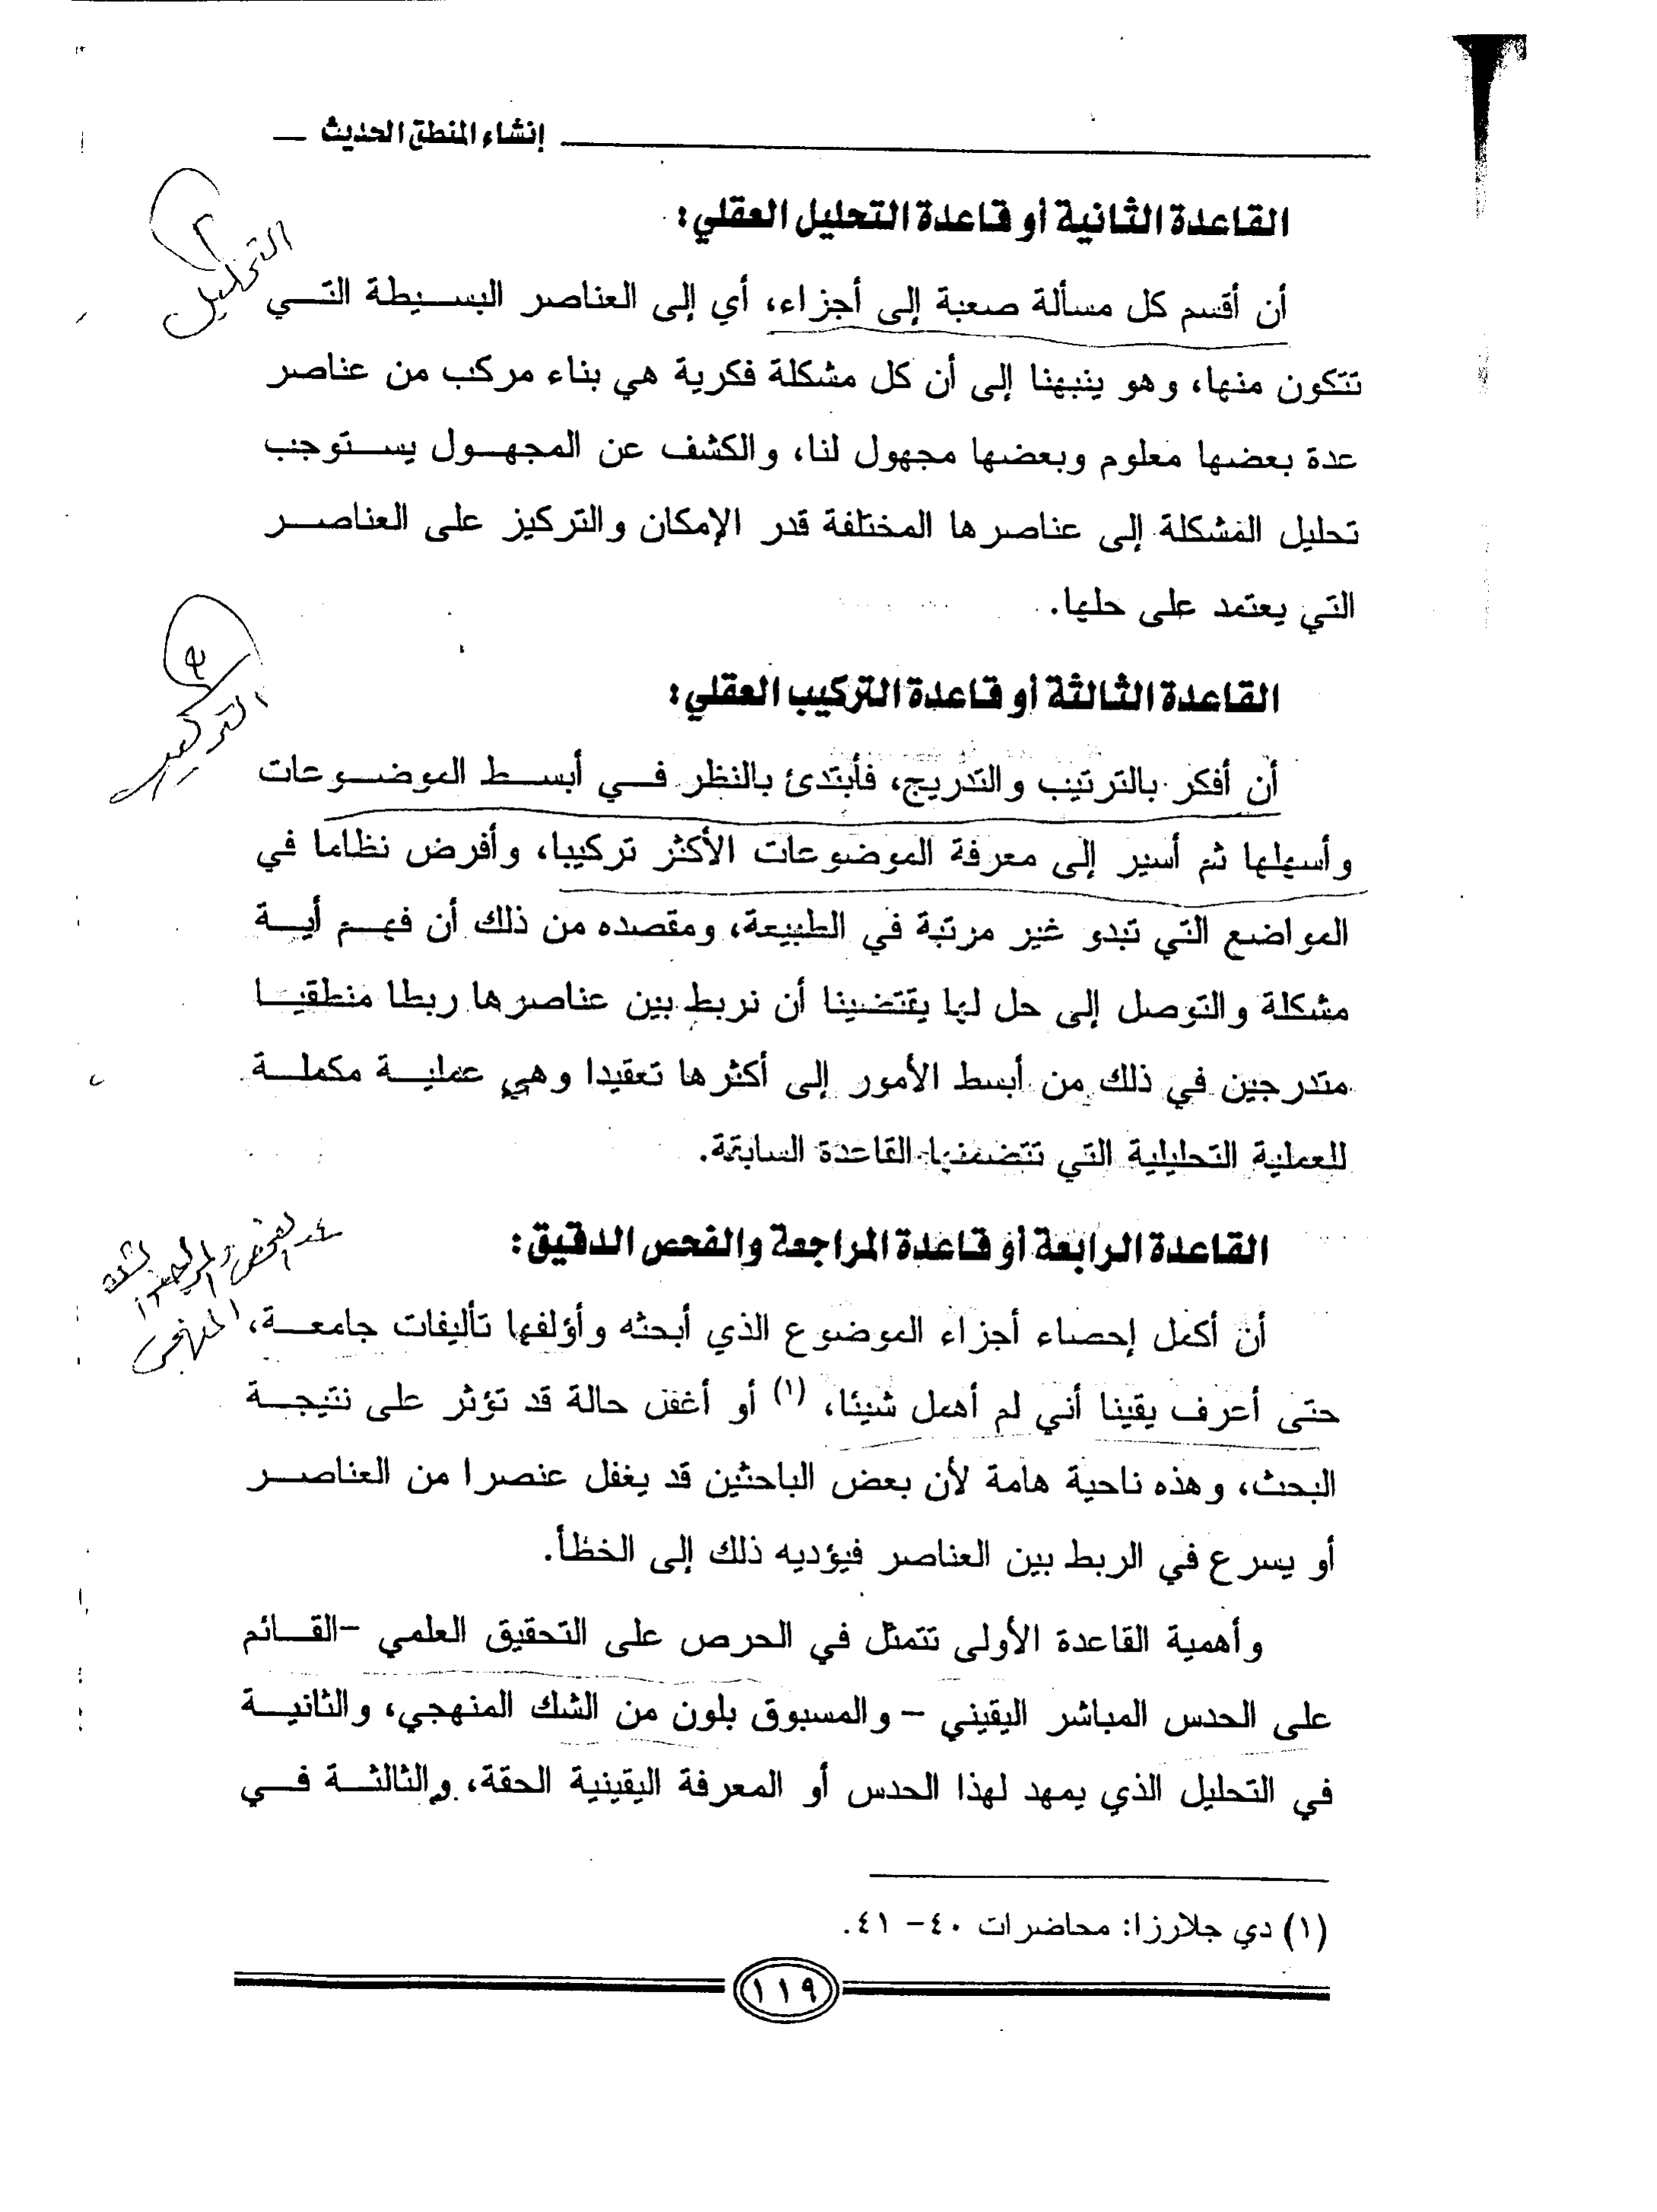 إنشاء المنطق الحديث
القاعدة الثانية أو قاعدة التحليل العقلي:
التحليل
أن أقسم كل مسألة صعبة إلى أجزاء، أي إلى العناصر البسيطة التي
تتكون منها، وهو ينبهنا إلى أن كل مشكلة فكرية هي بناء مركب من عناصر
عدة بعضها معلوم وبعضها مجهول لنا، والكشف عن المجهول يستوجب
تحليل المشكلة إلى عناصرها المختلفة قدر الإمكان والتركيز على العناصر
التي يعتمد على حلها.
القاعدة الثالثة أو قاعدة التركيب العقلي:
التركيب
أن أفكر بالترتيب والتدريج، فأبتدئ بالنظر في أبسط الموضوعات
وأسهلها ثم أسير إلى معرفة الموضوعات الأكثر تركيبا، وأفرض نظاما في
المواضع التي تبدو غير مرتبة في الطبيعة، ومقصده من ذلك أن فهم أية
مشكلة والتوصل إلى حل لها يقتضينا أن نربط بين عناصرها ربطا منطقيا
متدرجين في ذلك من أبسط الأمور إلى أكثرها تعقيدا وهي عملية مكملة
للعملية التحليلية التي تتضمنها القاعدة السابقة.
القاعدة الرابعة أو قاعدة المراجعة والفحص الدقيق:
أن أكمل إحصاء أجزاء الموضوع الذي أبحثه وأؤلفها تأليفات جامعة،
حتى أعرف يقينا أني لم أهمل شيئا، (١) أو أغفل حالة قد تؤثر على نتيجة
البحث، وهذه ناحية هامة لأن بعض الباحثين قد يغفل عنصرا من العناصر
أو يسرع في الربط بين العناصر فيؤديه ذلك إلى الخطأ.
وأهمية القاعدة الأولى تتمثل في الحرص على التحقيق العلمي -القائم
على الحدس المباشر اليقيني – والمسبوق بلون من الشك المنهجي، والثانية
في التحليل الذي يمهد لهذا الحدس أو المعرفة اليقينية الحقة، والثالثة في
(١) دي جلارزا: محاضرات ٤٠- ٤١.
١١٩